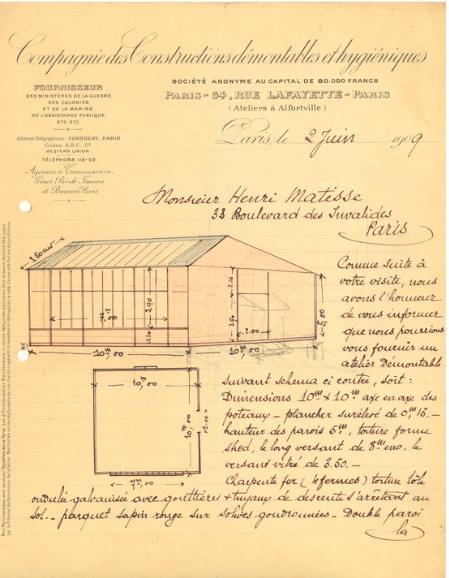 Compagnie des Constructions démontables et hygiéniques
FOURNISSEUR
DES MINISTÈRES DE LA GUERRE,
DES COLONIES
ET DE LA MARINE,
DE L'ASSISTANCE PUBLIQUE,
ETC. ETC.
Adresse Télégraphique:
PARIS
Codes: A.B.C.
WESTERN UNION
TÉLÉPHONE
Agences à Tananarive,
Rio de Janeiro
et Buenos Aires
SOCIÉTÉ ANONYME AU CAPITAL DE 80.000 FRANCS
PARIS - 54, RUE LAFAYETTE - PARIS
(Ateliers à Alfortville)
Paris, le 2 Juin 1909
Monsieur Henri Matisse
33 Boulevard des Invalides
Paris
Comme suite à
votre visite, nous
avons l'honneur
de vous informer
que nous pourrions
vous fournir un
atelier Démontable
suivant schema ci contre, soit:
Dimensions 10m x 10m axe en axe des
poteaux - plancher surélevé de 0,m15. -
hauteur des parois 5m, toiture forme
shed, le long versant de 8m env. le
versant vitré de 3.50. -
Charpente fer (4 fermes) toiture tôle
ondulée galvanisée avec gouttières & tuyaux de descente s'arrêtant au
sol. - parquet sapin rouge sur solives goudronnées. - Double paroi
la
3.50
2.90
5,00
10m,00
10m,00
10m,00